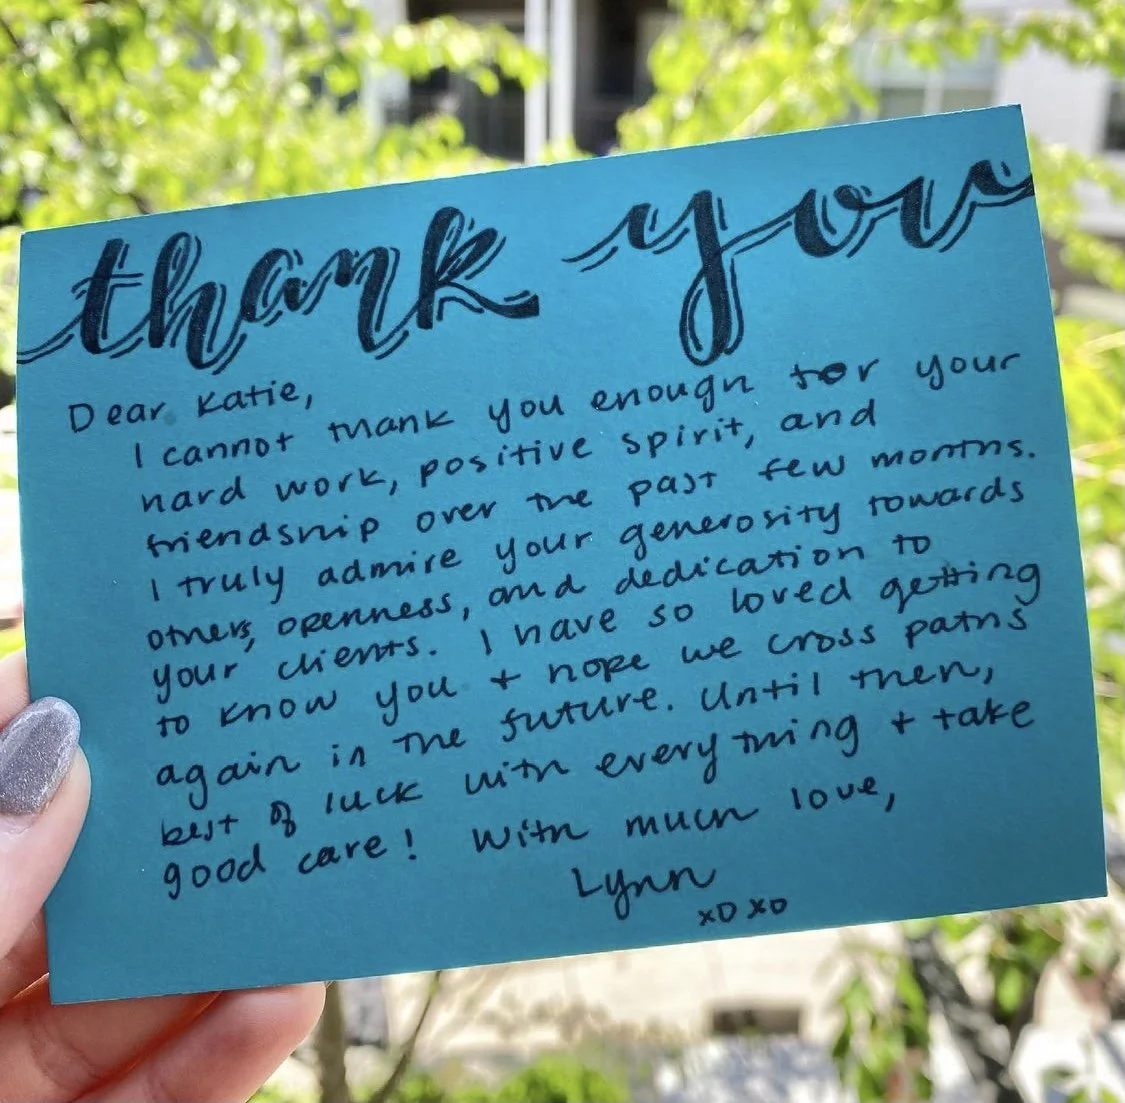 thank you
Dear Katie,
I cannot thank you enough for your
hard work, positive spirit, and
friendship over the past few months.
I truly admire your generosity towards
others, openness, and dedication to
your clients. I have so loved getting
to know you + hope we cross paths
again in the future. Until then,
best of luck with everything + take
good care! With much love,
Lynn
XOXO